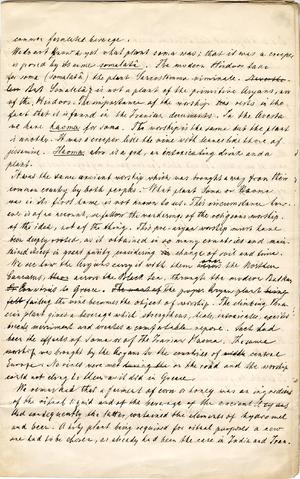 common fermented beverage.
We do not know as yet what plant soma was; that it was a creeper,
is proved by its name somalatâ. The modern Hindoos take
for soma (somalatâ) the plant Sarcostemma viminale.
But Somalatâ is not a plant of the primitive Aryans, nor
of the Hindoos. The importance of the worship rests in the
fact that it is found in the Iranian documents. In the Avesta
we have haoma for soma. The worship is the same but the plant
is another. It was a creeper like the vine with leaves like those of
jessamine. Haoma also is a god, an intoxicating drink and a
plant.
It was the same ancient worship which was brought away from their
common country by both peoples. What plant Soma or Haoma
was in its first name is not known to us. This circumstance
is of no account, we follow the wanderings of the religious worship,
of the idea, not of the thing. This pre-aryan worship must have
been deeply rooted, as it obtained in so many countries and main-
tained itself in great purity, considering change of soil and time.
We see how the Aryans carry it with them over the
Caucasus, across the Black Sea, through the
to Greece. The of the proper Aryan plant being
the vine becomes the object of worship. The climbing Thra-
cian plant gives a beverage which strengthens, heals, intoxicates,
movement and makes a comfortable repose. Such had
been the effects of Soma or of the Iranian Haoma. The same
worship was brought by the Aryans to the countries of central
Europe. No vines were met on the road and the worship
could not cling to them as it did in Greece.
We remarked that a ferment of corn & honey was an ingredient
of the ritual liquid and of the beverage of the ancient Aryans
and consequently the latter contained the elements of hydromel
and beer. A holy plant being required for ritual purposes a new
one had to be chosen, as already had been the case in India and Iran.